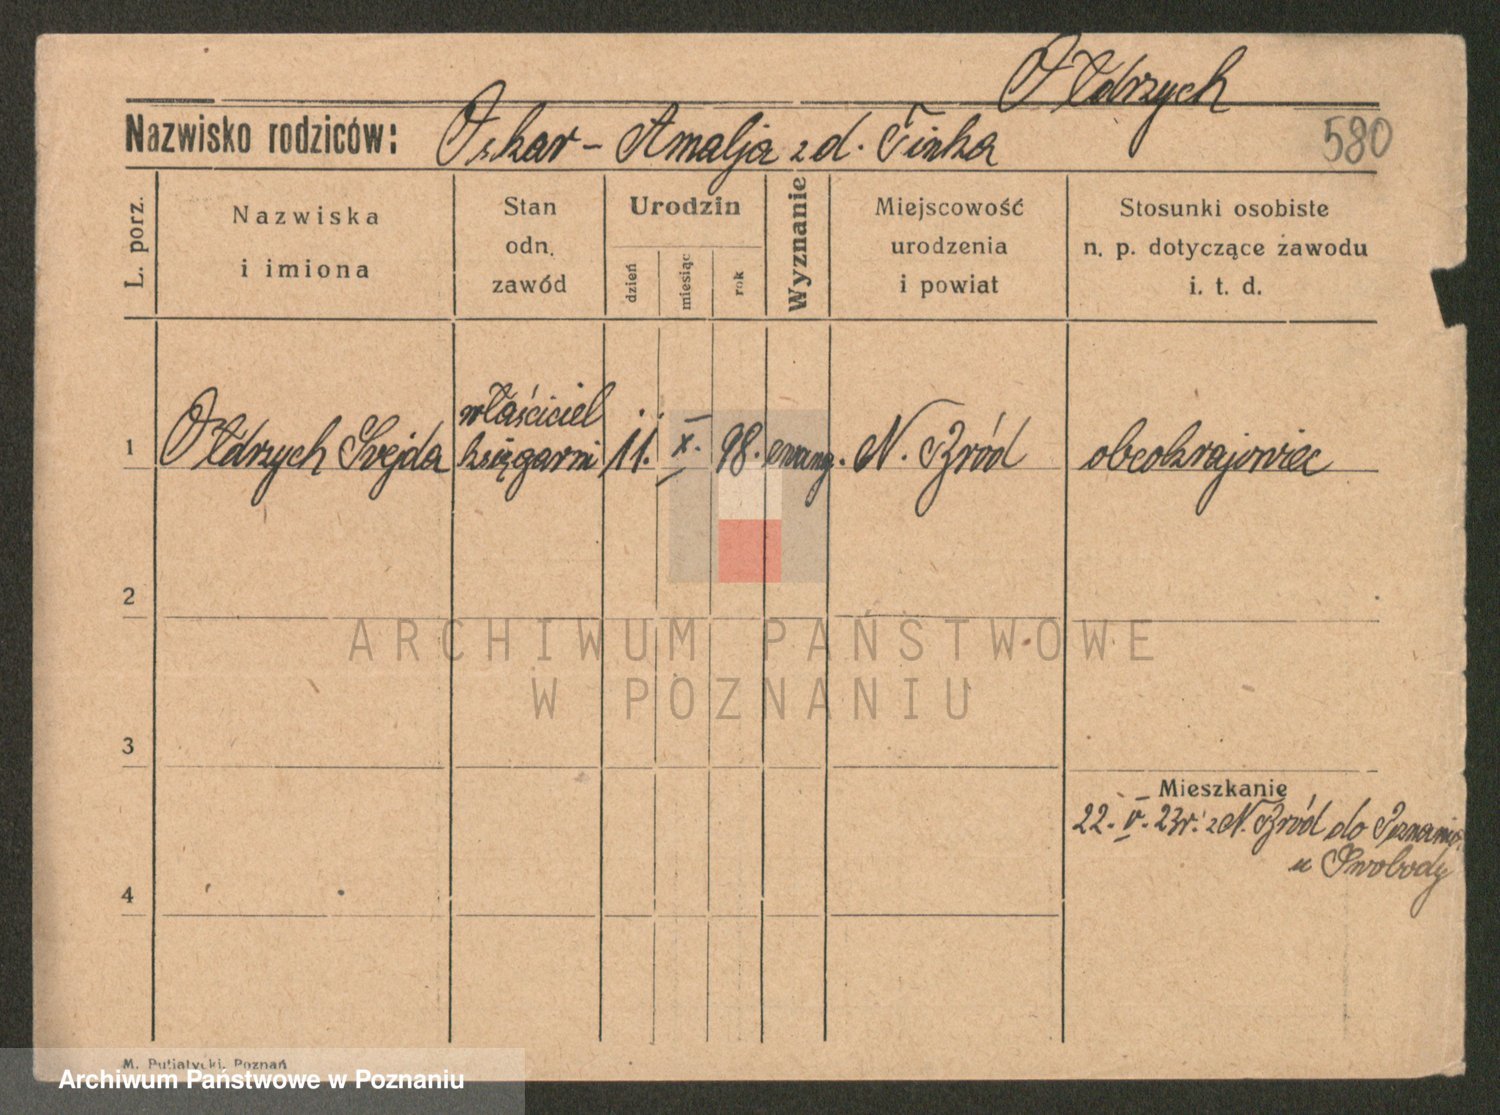 Ołdrzych
Nazwisko rodziców: Oskar - Amalja z d. Finka
580
L. porz.
Nazwiska
i imiona
Stan
odn.
zawód
Urodzin
dzień
miesiąc
rok
Wyznanie
Miejscowość
urodzenia
i powiat
Stosunki osobiste
n. p. dotyczące zawodu
i. t. d.
1 Ołdrzych Svejda właściciel księgarni 11. X. 98. ewang. N. Bród obcokrajowiec
2
ARCHIWUM PAŃSTWOWE
W POZNANIU
3
Mieszkanie
22. V. 23r. z N. Bród do Poznania
u Swobody
4
M. Putiatycki, Poznań
Archiwum Państwowe w Poznaniu